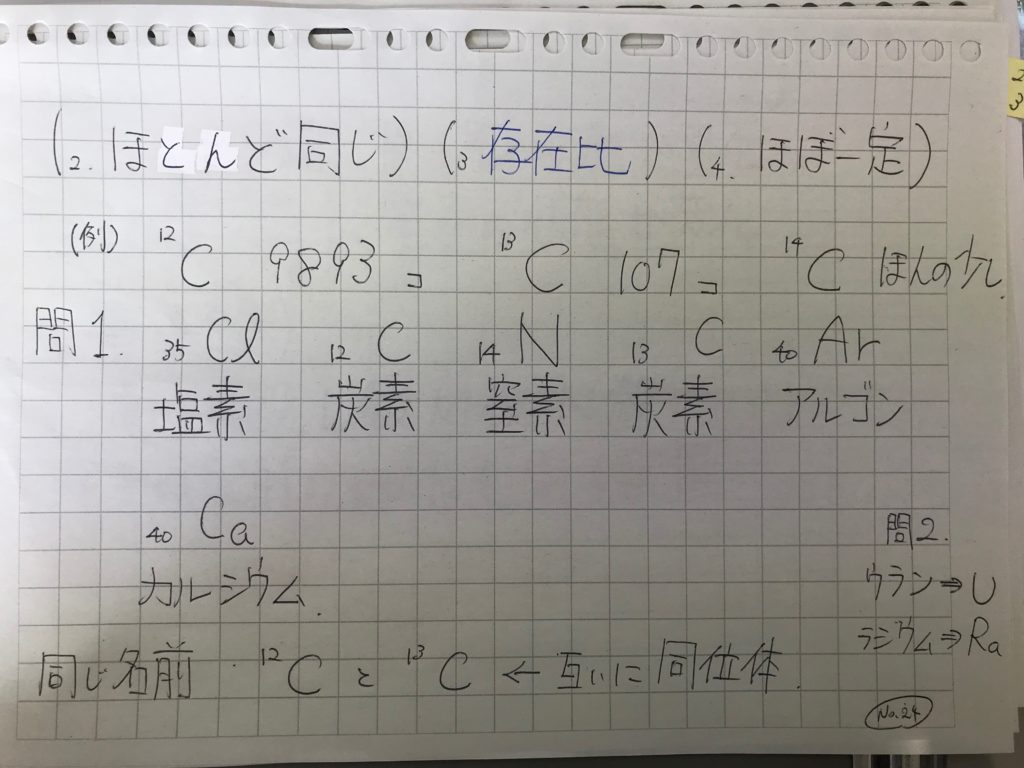 (2. ほとんど同じ) (3 存在比) (4. ほぼ一定)
(例) ¹²C 9893コ ¹³C 107コ ¹⁴C ほんの少し
問1. ₃₅Cl ₁₂C ₁₄N ₁₃C ₄₀Ar
塩素 炭素 窒素 炭素 アルゴン
₄₀Ca
カルシウム.
問2.
ウラン⇒U
ラジウム⇒Ra
同じ名前 ¹²C と ¹³C ← 互いに同位体.
No.24
2
3